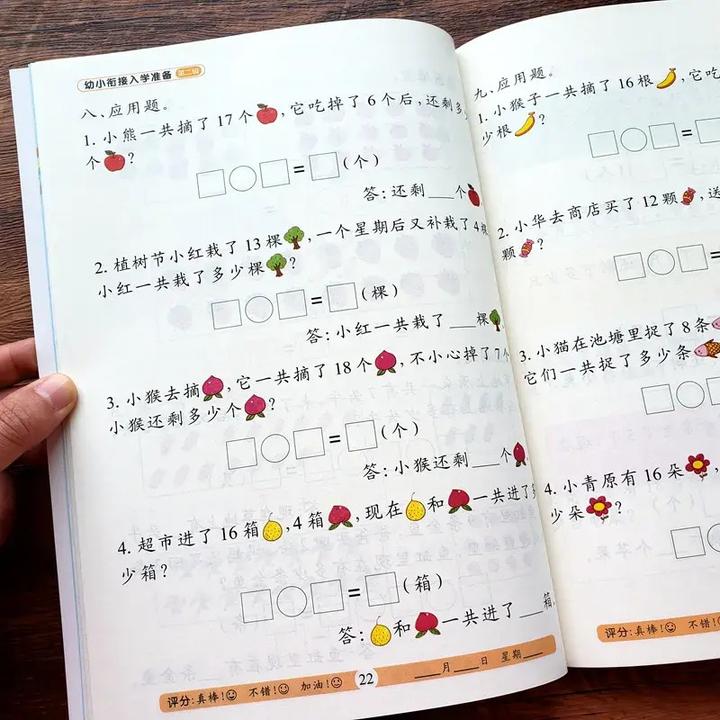 幼小衔接入学准备 第二辑
八、应用题。
1. 小熊一共摘了 17 个，它吃掉了 6 个后，还剩多
个？
□○□=□(个)
答：还剩___个
2. 植树节小红栽了 13 棵，一个星期后又补栽了 4 棵
小红一共栽了多少棵？
□○□=□(棵)
答：小红一共栽了___棵
3. 小猴去摘，它一共摘了 18 个，不小心掉了 7 个
小猴还剩多少个？
□○□=□(个)
答：小猴还剩___个
4. 超市进了 16 箱，4 箱，现在和一共进了多
少箱？
□○□=□(箱)
答：和一共进了___箱
评分：真棒！ 不错！ 加油！ 22 ___月___日 星期___
九、应用题。
1. 小猴子一共摘了 16 根，它吃
少根？
□○□=
2. 小华去商店买了 12 颗，送
颗？
□○□=
3. 小猫在池塘里捉了 8 条
它们一共捉了多少条
□○
4. 小青原有 16 朵
少朵？
□
评分：真棒！ 不错！